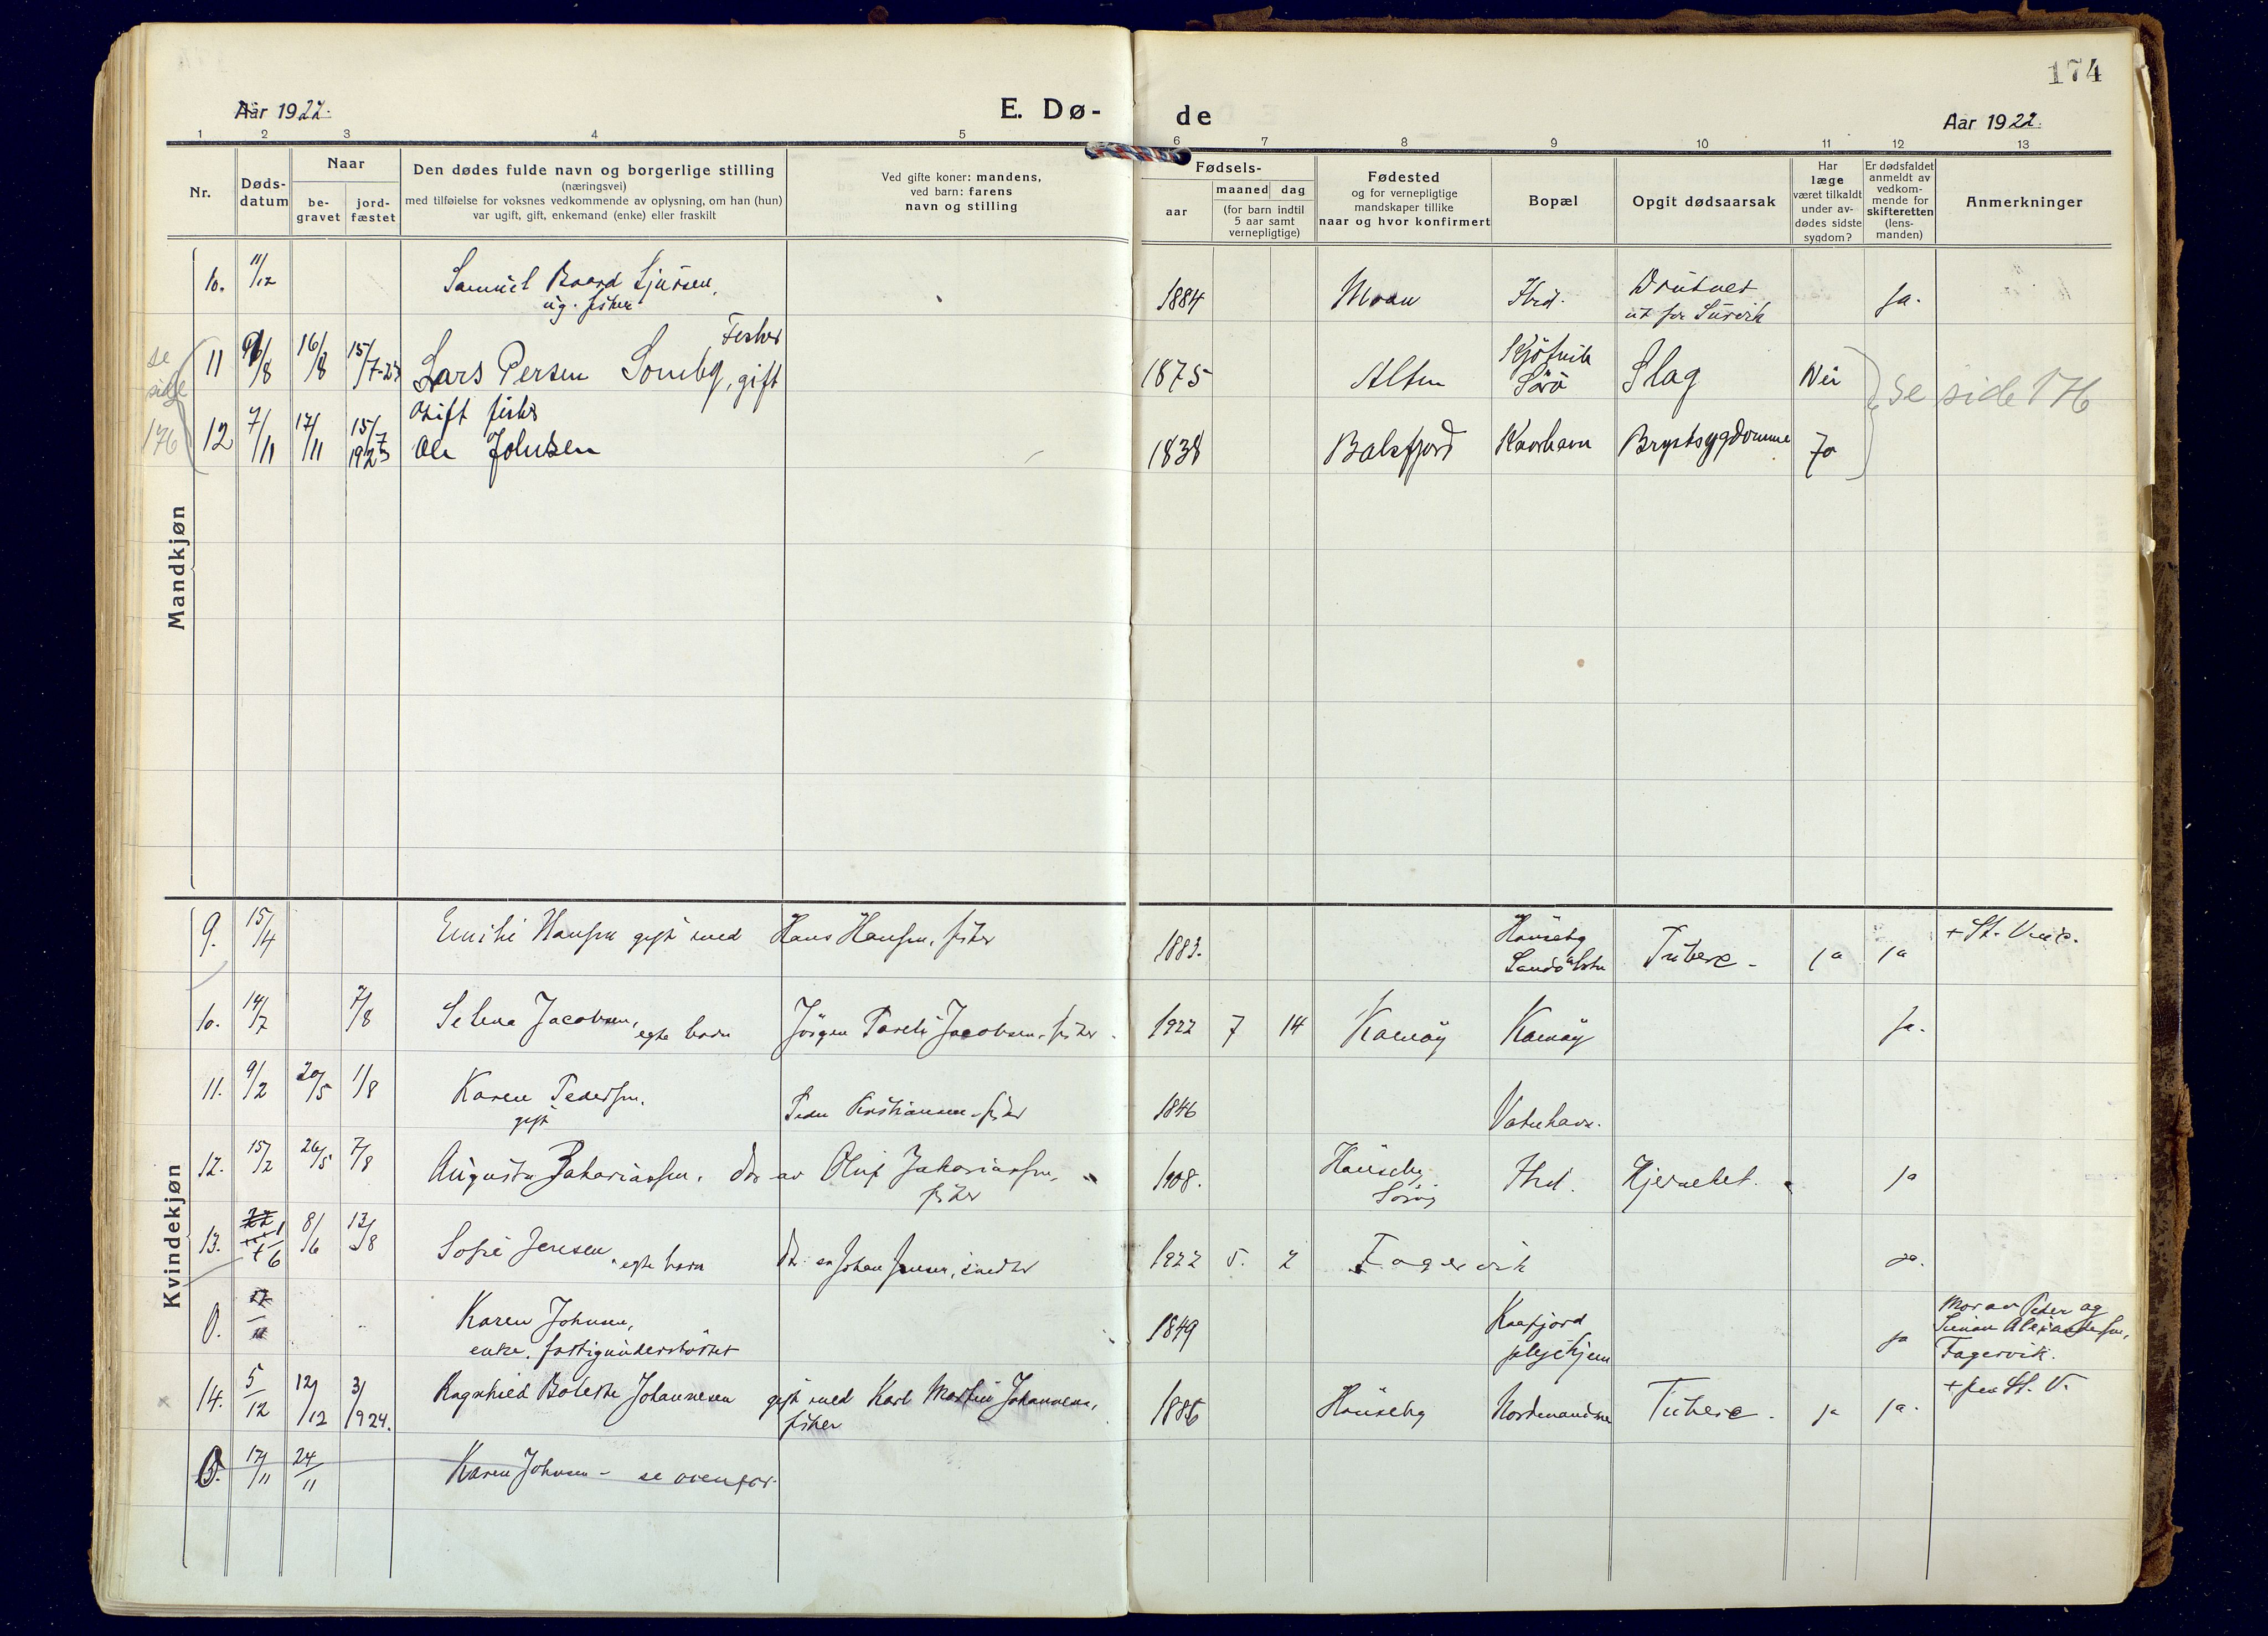 174
Aar 1922.
E. Dø-
de
Aar 1922.
1 2 3 4 5 6 7 8 9 10 11 12 13
Nr.
Døds-
datum
Naar
be-
gravet
jord-
fæstet
Den dødes fulde navn og borgerlige stilling
(næringsvei)
med tilføielse for voksnes vedkommende av oplysning, om han (hun)
var ugift, gift, enkemand (enke) eller fraskilt
Ved gifte koner: mandens,
ved barn: farens
navn og stilling
Fødsels-
aar
maaned dag
(for barn indtil
5 aar samt
vernepligtige)
Fødested
og for vernepligtige
mandskaper tillike
naar og hvor konfirmert
Bopæl
Opgit dødsaarsak
Har
læge
været tilkaldt
under av-
dødes sidste
sygdom?
Er dødsfaldet
anmeldt av
vedkom-
mende for
skifteretten
(lens-
manden)
Anmerkninger
Mandkjøn
10. 11/12 Samuel Baard Sjursen, 1884 Ja.
ug. fisker
se
side
176
Fisker
11 16/8 15/7-23 Lars Persen Somby, gift 1875 Alten Sørø Slag Nei
se side 176
Gift fisker
12 7/11 17/11 15/7 1923 Ole Johnsen 1838 Balsfjord Brystsygdomme Ja
Kvindekjøn
9. 15/4 Emilie Hansen gift med Hans Hansen, fisker 1883. Tuberc. ja ja + St. Vinc.
10. 14/7 7/8 Selma Jacobsen, egte barn Jørgen Jacobsen, fisker. 1922 7 14 Kamøy Kamøy Ja.
11. 9/2 20/5 1/8 Karen Pedersen, Peder Kristiansen, fisker 1846
gift
12. 15/2 26/5 7/8 Augusta Zakariassen, dtr av Oluf Zakariassen, 1908. Sørøy Hjertefeil. ja
fisker
13. 1/6 8/6 13/8 Sofie Jensen, egte barn Dtr. av Johan Jensen, 1922 5. 2 Fagervik ja.
0. Karen Johnsen, 1849 Kaafjord ja Mor av Peder og
enke, fattigunderstøttet pleyehjem Simon Alexandersen,
Fagervik.
14. 5/12 12/12 3/1924. Ragnhild Johannesen gift med Karl Martin Johannesen, 1886 Tuberc. ja ja. + fra St. V.
fisker
17/11 24/11 Karen Johnsen - se ovenfor.